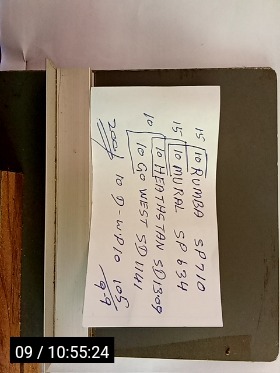 15 10 RUMBA SP710
15 10 MURAL SP634
10 10 HEATHSTAN SD1309
10 GO WEST SD1141
10 D-W.P10 105
9-9
09 / 10:55:24